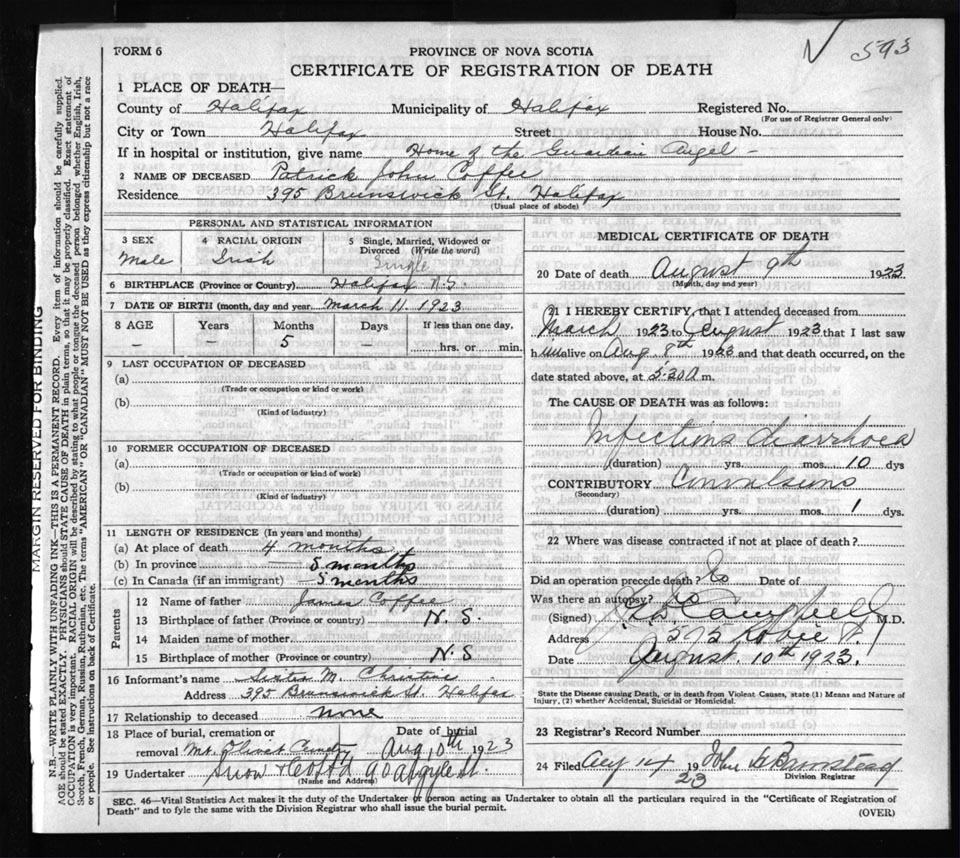 593
FORM 6
PROVINCE OF NOVA SCOTIA
CERTIFICATE OF REGISTRATION OF DEATH
1 PLACE OF DEATH—
County of Halifax Municipality of Halifax Registered No.
(For use of Registrar General only)
City or Town Halifax Street House No.
If in hospital or institution, give name Home of the Guardian Angel —
2 NAME OF DECEASED Patrick John Coffee
Residence 395 Brunswick St. Halifax
(Usual place of abode)
PERSONAL AND STATISTICAL INFORMATION
3 SEX 4 RACIAL ORIGIN 5 Single, Married, Widowed or Divorced (Write the word)
Male Irish Single
6 BIRTHPLACE (Province or Country) Halifax N.S.
7 DATE OF BIRTH (month, day and year) March 11. 1923
8 AGE Years Months Days If less than one day,
— — 5 — hrs. or min.
9 LAST OCCUPATION OF DECEASED
(a)
(Trade or occupation or kind or work)
(b)
(Kind of industry)
10 FORMER OCCUPATION OF DECEASED
(a)
(Trade or occupation or kind of work)
(b)
(Kind of industry)
11 LENGTH OF RESIDENCE (In years and months)
(a) At place of death 4 months
(b) In province — 5 months
(c) In Canada (if an immigrant) — 5 months
Parents
12 Name of father James Coffee
13 Birthplace of father (Province or country) N.S.
14 Maiden name of mother
15 Birthplace of mother (Province or country) N.S
16 Informant's name Sister M. Christine
Address 395 Brunswick St. Halifax
17 Relationship to deceased none
18 Place of burial, cremation or removal Mt. Olivet Date of burial Aug 10th 1923
19 Undertaker Snow & Co Ltd 90 Argyle St.
(Name and Address)
MEDICAL CERTIFICATE OF DEATH
20 Date of death August 9th 1923
(Month, day and year)
21 I HEREBY CERTIFY, that I attended deceased from
March 1923 to August 1923 that I last saw
him alive on Aug. 8th 1923 and that death occurred, on the
date stated above, at 5.30 a m.
The CAUSE OF DEATH was as follows:
Infectious diarrhoea
(duration) yrs. mos. 10 dys
CONTRIBUTORY Convulsions
(Secondary)
(duration) yrs. mos. 1 dys.
22 Where was disease contracted if not at place of death?
Did an operation precede death? No Date of
Was there an autopsy? No
(Signed) Campbell M.D.
Address Robie St
Date August. 10th 1923.
State the Disease causing Death, or in death from Violent Causes, state (1) Means and Nature of
Injury, (2) whether Accidental, Suicidal or Homicidal.
23 Registrar's Record Number
24 Filed Aug 14 1923 John
Division Registrar
SEC. 46—Vital Statistics Act makes it the duty of the Undertaker or person acting as Undertaker to obtain all the particulars required in the "Certificate of Registration of
Death" and to fyle the same with the Division Registrar who shall issue the burial permit.
(OVER)
MARGIN RESERVED FOR BINDING
N.B.—WRITE PLAINLY WITH UNFADING INK—THIS IS A PERMANENT RECORD. Every item of information should be carefully supplied.
AGE should be stated EXACTLY. PHYSICIANS should STATE CAUSE OF DEATH in plain terms, so that it may be properly classified. Exact statement of
OCCUPATION is very important. RACIAL ORIGIN will be described by stating to what people or tongue the deceased person belonged, whether English, Irish,
Scotch, French, German, Russian, Ruthenian, etc. The terms "AMERICAN" OR "CANADIAN" MUST NOT BE USED as they express citizenship but not a race
or people. See instructions on back of Certificate.